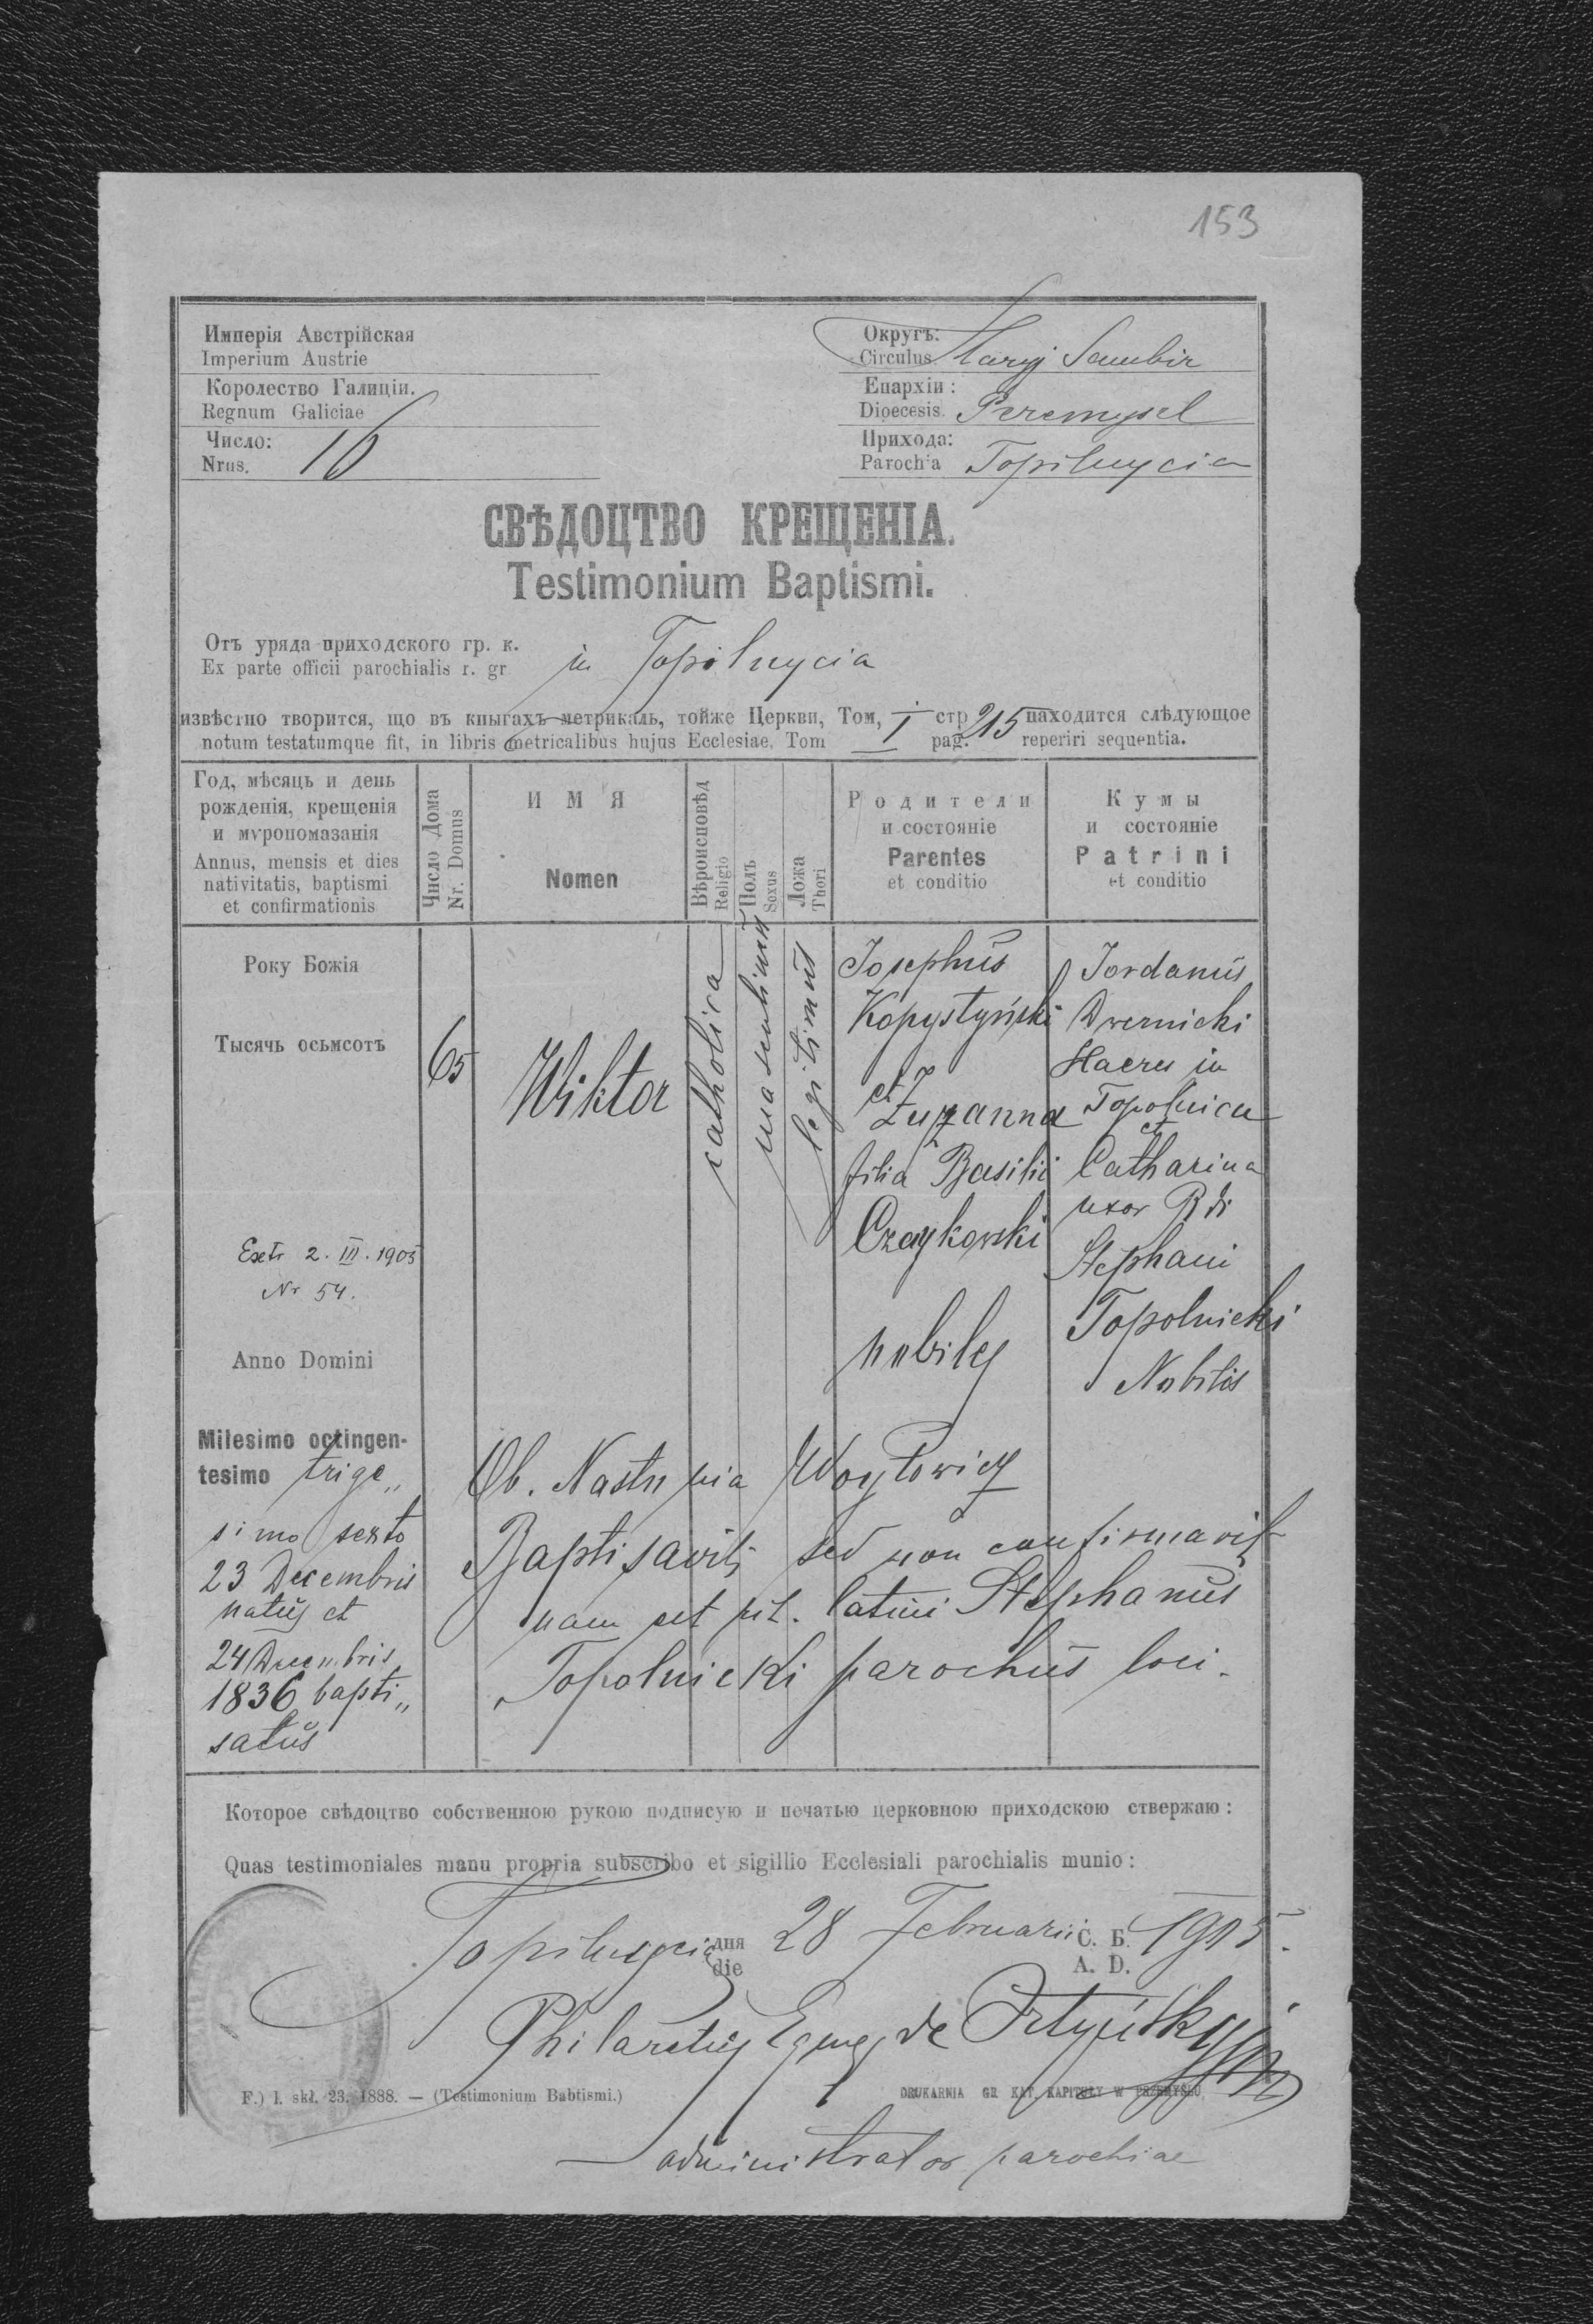 153
Имперія Австрійская
Imperium Austrie
Королество Галиціи.
Regnum Galiciae
Число:
Nrus. 16
Округъ:
Circulus Staryj Sambir
Епархіи:
Dioecesis. Peremysel
Прихода:
Parochia Topilnycia
СВѢДОЦТВО КРЕЩЕНІА.
Testimonium Baptismi.
Отъ уряда приходского гр. к.
Ex parte officii parochialis r. gr in Topilnycia
извѣстно творится, що въ кныгахъ метрикаль, тойже Церкви, Том, I стр 215 находится слѣдующое
notum testatumque fit, in libris metricalibus hujus Ecclesiae, Tom pag. reperiri sequentia.
Год, мѣсяць и день
рожденія, крещенія
и мѵропомазанія
Annus, mensis et dies
nativitatis, baptismi
et confirmationis
Число Дома
Nr. Domus
ИМЯ
Nomen
Вѣроисповѣд
Religio
Полъ
Sexus
Ложа
Thori
Родители
и состояніе
Parentes
et conditio
Кумы
и состояніе
Patrini
et conditio
Року Божія
Тысячь осьмсотъ
Extr 2. III. 1905
Nr 54.
Anno Domini
Milesimo octingen-
tesimo trige„
simo sexto
23 Decembris
natus et
24 Decembris
1836 bapti„
satus
65
Wiktor
catholica
masculinum
legitimus
Josephus
Kopystyński
et
Zuzanna
filia Basilii
Czaykowski
nobiles
Jordanus
Dwernicki
Haeres in
Topolnica
et
Catharina
uxor Rdi
Stephani
Topolnicki
Nobilis
Ob. Nastunia Woytowicz
Baptisavit sed non confirmavit
nam est rit. latini Stephanus
Topolnicki parochus loci.
Которое свѣдоцтво собственною рукою подписую и печатью церковною приходскою ствержаю:
Quas testimoniales manu propria subscribo et sigillio Ecclesiali parochialis munio:
Topilnycia дня 28 Februarii С. Б. 1905.
die A. D.
Philaretus Eques de
F.) l. skł. 23. 1888. — (Testimonium Babtismi.)
DRUKARNIA GR KAT. KAPITUŁY W PRZEMYŚLU
administrator parochiae